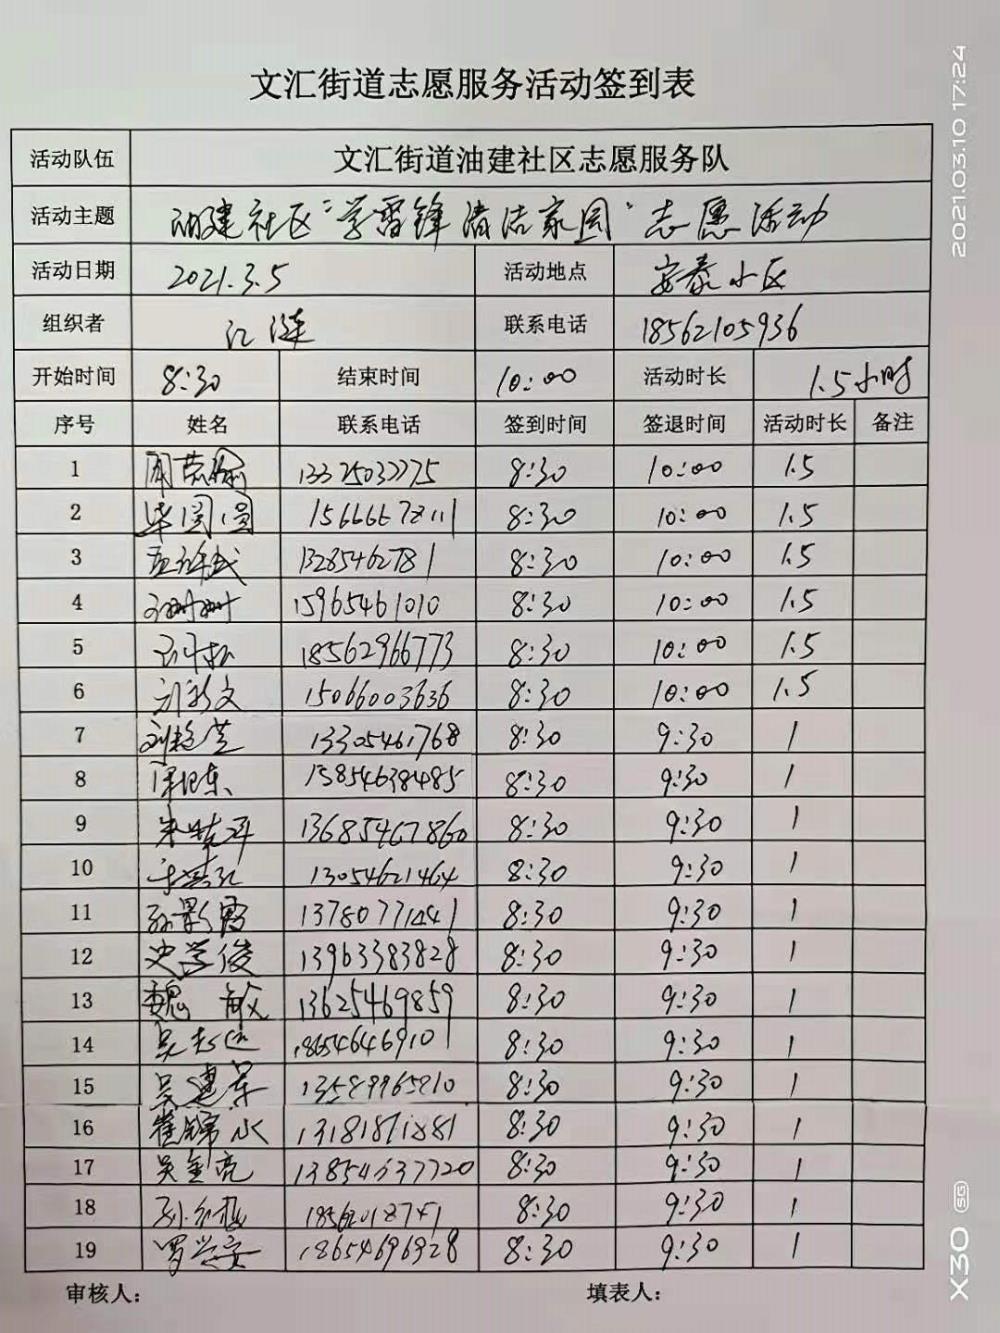 文汇街道志愿服务活动签到表
活动队伍 文汇街道油建社区志愿服务队
活动主题 油建社区“学雷锋清洁家园”志愿活动
活动日期 2021.3.5 活动地点 安泰小区
组织者 江涟 联系电话 18562105936
开始时间 8:30 结束时间 10:00 活动时长 1.5小时
序号 姓名 联系电话 签到时间 签退时间 活动时长 备注
1 13325033775 8:30 10:00 1.5
2 毕圆圆 8:30 10:00 1.5
3 13285462781 8:30 10:00 1.5
4 15965461010 8:30 10:00 1.5
5 18562966773 8:30 10:00 1.5
6 15066003636 8:30 10:00 1.5
7 刘艳芝 13305461768 8:30 9:30 1
8 15854638485 8:30 9:30 1
9 13685467860 8:30 9:30 1
10 13054621464 8:30 9:30 1
11 孙影霞 8:30 9:30 1
12 史学俊 13963383828 8:30 9:30 1
13 魏敏 13625469859 8:30 9:30 1
14 18654646910 8:30 9:30 1
15 吴建军 8:30 9:30 1
16 崔锦水 8:30 9:30 1
17 吴金亮 8:30 9:30 1
18 8:30 9:30 1
19 罗兴安 18654696928 8:30 9:30 1
审核人： 填表人：
2021.03.10 17:24
X30 5G